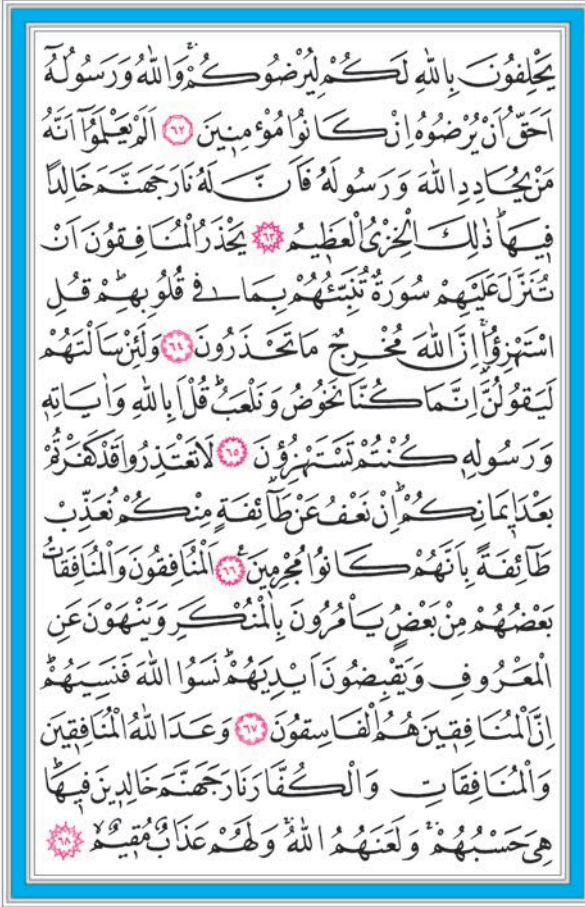 يَحْلِفُونَ بِاللّٰهِ لَكُمْ لِيُرْضُوكُمْۚ وَاللّٰهُ وَرَسُولُهُٓ
اَحَقُّ اَنْ يُرْضُوهُ اِنْ كَانُوا مُؤْمِن۪ينَ ﴿٦٢﴾ اَلَمْ يَعْلَمُٓوا اَنَّهُ
مَنْ يُحَادِدِ اللّٰهَ وَرَسُولَهُ فَاَنَّ لَهُ نَارَ جَهَنَّمَ خَالِدًا
ف۪يهَاۜ ذٰلِكَ الْخِزْيُ الْعَظ۪يمُ ﴿٦٣﴾ يَحْذَرُ الْمُنَافِقُونَ اَنْ
تُنَزَّلَ عَلَيْهِمْ سُورَةٌ تُنَبِّئُهُمْ بِمَا ف۪ي قُلُوبِهِمْۜ قُلِ
اسْتَهْزِؤُ۫اۚ اِنَّ اللّٰهَ مُخْرِجٌ مَا تَحْذَرُونَ ﴿٦٤﴾ وَلَئِنْ سَاَلْتَهُمْ
لَيَقُولُنَّ اِنَّمَا كُنَّا نَخُوضُ وَنَلْعَبُۜ قُلْ اَبِاللّٰهِ وَاٰيَاتِه۪
وَرَسُولِه۪ كُنْتُمْ تَسْتَهْزِؤُ۫نَ ﴿٦٥﴾ لَا تَعْتَذِرُوا قَدْ كَفَرْتُمْ
بَعْدَ ا۪يمَانِكُمْۜ اِنْ نَعْفُ عَنْ طَٓائِفَةٍ مِنْكُمْ نُعَذِّبْ
طَٓائِفَةً بِاَنَّهُمْ كَانُوا مُجْرِم۪ينَ۟ ﴿٦٦﴾ اَلْمُنَافِقُونَ وَالْمُنَافِقَاتُ
بَعْضُهُمْ مِنْ بَعْضٍۢ يَأْمُرُونَ بِالْمُنْكَرِ وَيَنْهَوْنَ عَنِ
الْمَعْرُوفِ وَيَقْبِضُونَ اَيْدِيَهُمْۜ نَسُوا اللّٰهَ فَنَسِيَهُمْۜ
اِنَّ الْمُنَافِق۪ينَ هُمُ الْفَاسِقُونَ ﴿٦٧﴾ وَعَدَ اللّٰهُ الْمُنَافِق۪ينَ
وَالْمُنَافِقَاتِ وَالْكُفَّارَ نَارَ جَهَنَّمَ خَالِد۪ينَ ف۪يهَاۜ
هِيَ حَسْبُهُمْۚ وَلَعَنَهُمُ اللّٰهُۚ وَلَهُمْ عَذَابٌ مُق۪يمٌۙ ﴿٦٨﴾